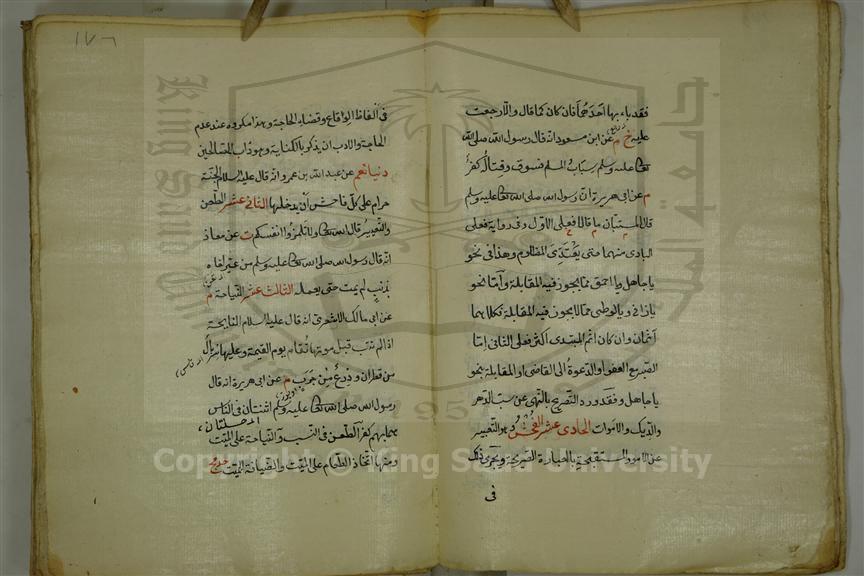 فقد باء بها احدهما فان كان كما قال والا رجعت
عليه خ م عن ابن مسعود انه قال رسول الله صلى الله
تعالى عليه وسلم سباب المسلم فسوق وقتاله كفر
م عن ابي هريرة ان رسول الله صلى الله تعالى عليه وسلم
قال المستبان ما قالا فعلى الاول وفي رواية فعلى
البادي منهما حتى يعتدى المظلوم وهذا في نحو
يا جاهل ويا احمق مما يجوز فيه المقابلة واما نحو
يا زاني و يا لوطي مما لا يجوز فيه المقابلة فكلاهما
آثمان وان كان اثم المبتدى اكثر فعلى الثاني اما
الصبر مع العفو او الدعوة الى القاضي او المقابلة بنحو
يا جاهل وقد ورد التصريح بالنهي عن سب الدهر
والديك والاموات الحادي عشر الفحش وهو التعبير
عن الامور المستقبحة بالعبارة الصريحة ويجرى ذلك
في
١٧٦
في الفاظ الوقاع وقضاء الحاجة وهذا مكروه عند عدم
الحاجة والادب ان يذكر بالكناية وهو داب الصالحين
دنيا نعم عن عبد الله بن عمرو انه قال عليه السلام الجنة
حرام على كل فاحش ان يدخلها الثاني عشر الطعن
والتعيير قال الله تعالى ولا تلمزوا انفسكم ت عن معاذ
انه قال رسول الله صلى الله تعالى عليه وسلم من عير اخاه
بذنب لم يمت حتى يعمله الثالث عشر النياحة م
عن ابي مالك الاشعري انه قال عليه السلام النايحة
اذا لم تتب قبل موتها تقام يوم القيمة وعليها سربال
من قطران و درع من جرب م عن ابي هريرة انه قال
رسول الله صلى الله تعالى عليه وسلم اثنتان في الناس
هما بهم كفر الطعن في النسب و النياحة على الميت
ومنها اتخاذ الطعام على الميت والضيافة للميت
Copyright © King Saud University
جامعة الملك سعود
King Saud University
1957